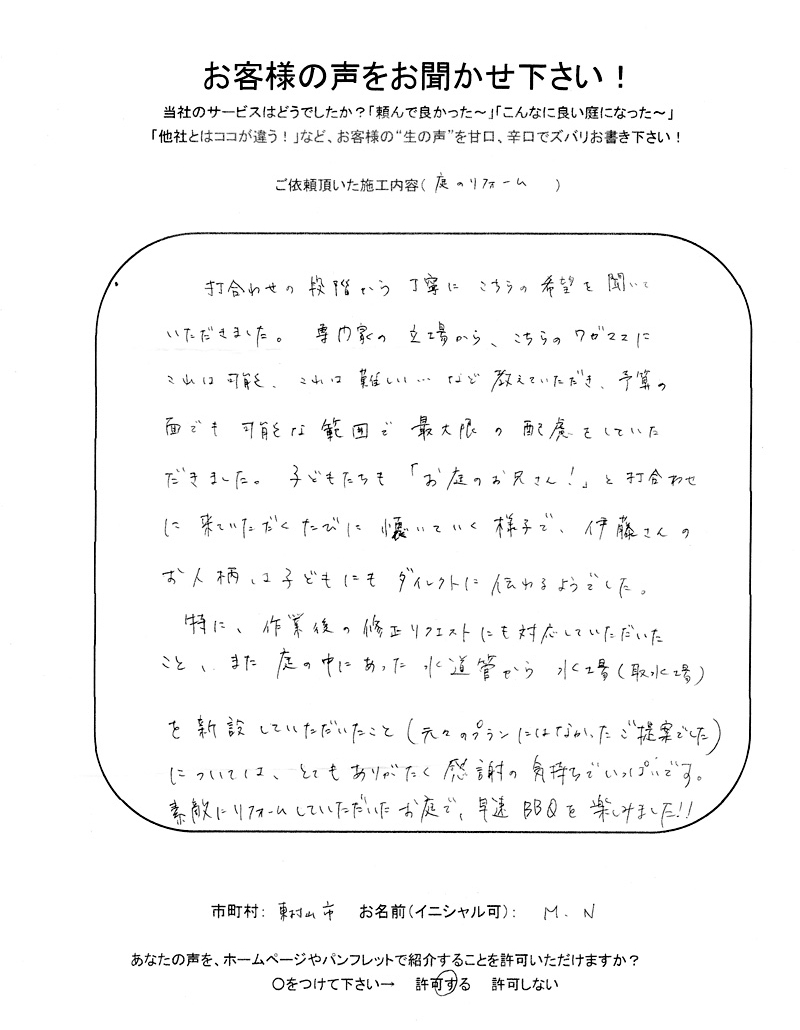 お客様の声をお聞かせ下さい！
当社のサービスはどうでしたか？「頼んで良かった～」「こんなに良い庭になった～」
「他社とはココが違う！」など、お客様の“生の声”を甘口、辛口でズバリお書き下さい！
ご依頼頂いた施工内容（ 庭のリフォーム ）
打合わせの段階から丁寧にこちらの希望を聞いて
いただきました。専門家の立場から、こちらのワガママに
これは可能、これは難しい…など教えていただき、予算の
面でも可能な範囲で最大限の配慮をしていた
だきました。子どもたちも「お庭のお兄さん！」と打合わせ
に来ていただくたびに懐いていく様子で、伊藤さんの
お人柄は子どもにもダイレクトに伝わるようでした。
特に、作業後の修正リクエストにも対応していただいた
こと、また庭の中にあった水道管から水場（取水場）
を新設していただいたこと（元々のプランにはなかったご提案でした）
については、とてもありがたく感謝の気持ちでいっぱいです。
素敵にリフォームしていただいたお庭で、早速BBQを楽しみました!!
市町村： 東村山市 お名前（イニシャル可）： M.N
あなたの声を、ホームページやパンフレットで紹介することを許可いただけますか？
〇をつけて下さい→ 許可する 許可しない